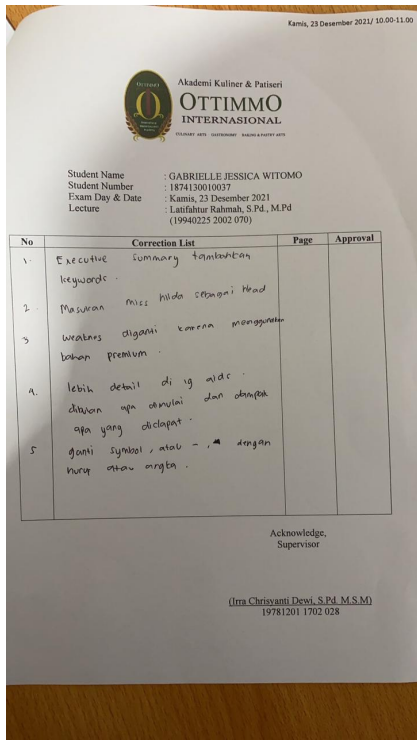 Kamis, 23 Desember 2021/ 10.00-11.00
OTTIMMO
Akademi Kuliner & Patiseri
OTTIMMO
INTERNASIONAL
CULINARY ARTS GASTRONOMY BAKING & PASTRY ARTS
Student Name : GABRIELLE JESSICA WITOMO
Student Number : 1874130010037
Exam Day & Date : Kamis, 23 Desember 2021
Lecture : Latifahtur Rahmah, S.Pd., M.Pd
(19940225 2002 070)
No Correction List Page Approval
1. Executive Summary tambahkan
keywords.
2. Masukan miss hilda sebagai Head
3 weaknes diganti karena menggunakan
bahan premium.
4. lebih detail di ig aids.
dibulan apa dimulai dan dampak
apa yang didapat.
5 ganti symbol, atau - , dengan
huruf atau angka.
Acknowledge,
Supervisor
(Irra Chrisyanti Dewi, S.Pd. M.S.M)
19781201 1702 028